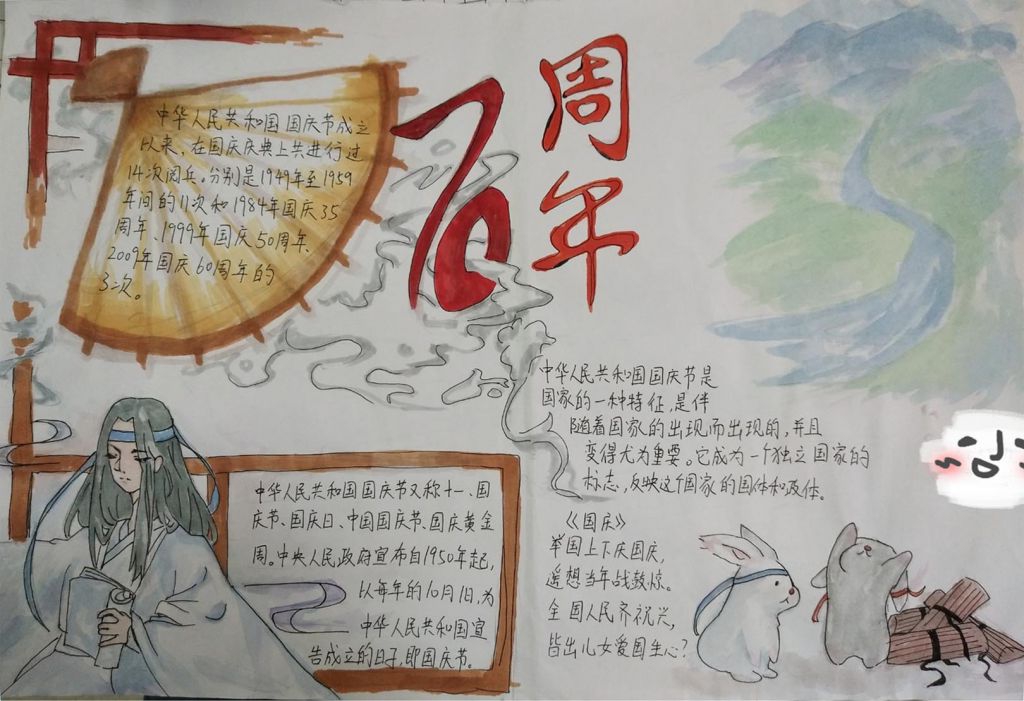 70周年
中华人民共和国国庆节成立
以来，在国庆庆典上共进行过
14次阅兵。分别是1949年至1959
年间的11次和1984年国庆35
周年、1999年国庆50周年、
2009年国庆60周年的
3次。
中华人民共和国国庆节是
国家的一种特征，是伴
随着国家的出现而出现的，并且
变得尤为重要。它成为一个独立国家的
标志，反映这个国家的国体和政体。
中华人民共和国国庆节又称十一、国
庆节、国庆日、中国国庆节、国庆黄金
周。中央人民政府宣布自1950年起，
以每年的10月1日，为
中华人民共和国宣
告成立的日子，即国庆节。
《国庆》
举国上下庆国庆，
遥想当年战鼓惊。
全国人民齐祝兴，
皆出儿女爱国生心？